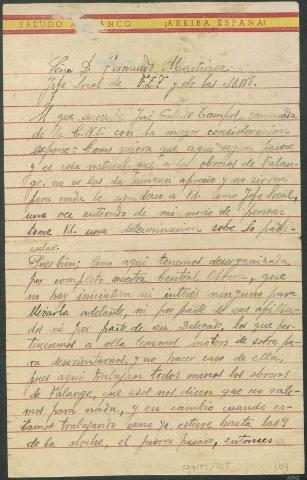 SALUDO A FRANCO ¡ARRIBA ESPAÑA!
Señor D. Fernando Martinez
Jefe Local de F.E.T y de las J.O.N.S.
El que suscribe José Camporro camarada
de la C.N.S. con la mayor consideración
expone: Como quiera que aqui segun parece
y es cosa natural que a los obreros de Falan-
ge, no se les da ningun aprecio y no sirven
para nada le a Vd. como Jefe Local,
una vez enterado de mi modo de pensar
tome Vd. una determinacion sobre lo parti-
cular.
Pues bien: Como aqui tenemos desorganizada
por completo nuestra Central Obrera, que
no hay iniciativa ni interés ninguno para
llevarla adelante, ni por parte de sus afilia-
dos ni por parte de su Delegado, los que per-
tenecemos a ella tenemos motivos de sobra pa-
ra desorientarnos, y no hacer caso de ella,
pues aqui trabajan todos menos los obreros
de Falange, que esos nos dicen que no vale-
mos para nada, y en cambio cuando es-
tamos trabajando como yo, estuve hasta las 9
de la noche, el jueves pasado, entonces
109